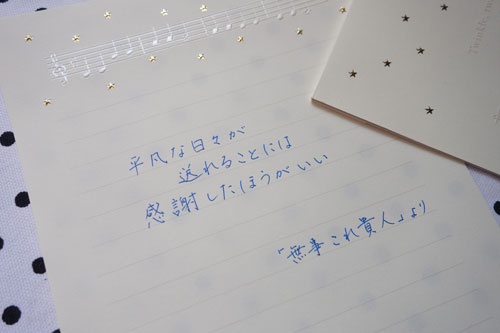 平凡な日々が
送れることには
感謝したほうがいい
「無事これ貴人」より